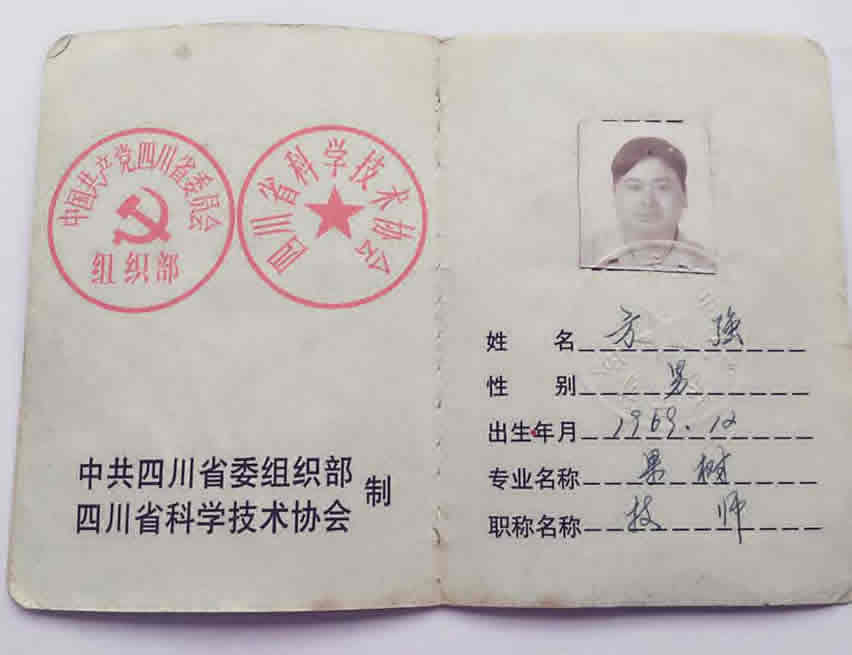 中国共产党四川省委员会
组织部
四川省科学技术协会
中共四川省委组织部
四川省科学技术协会 制
姓 名 方 强
性 别 男
出生年月 1969.12
专业名称 果树
职称名称 技师